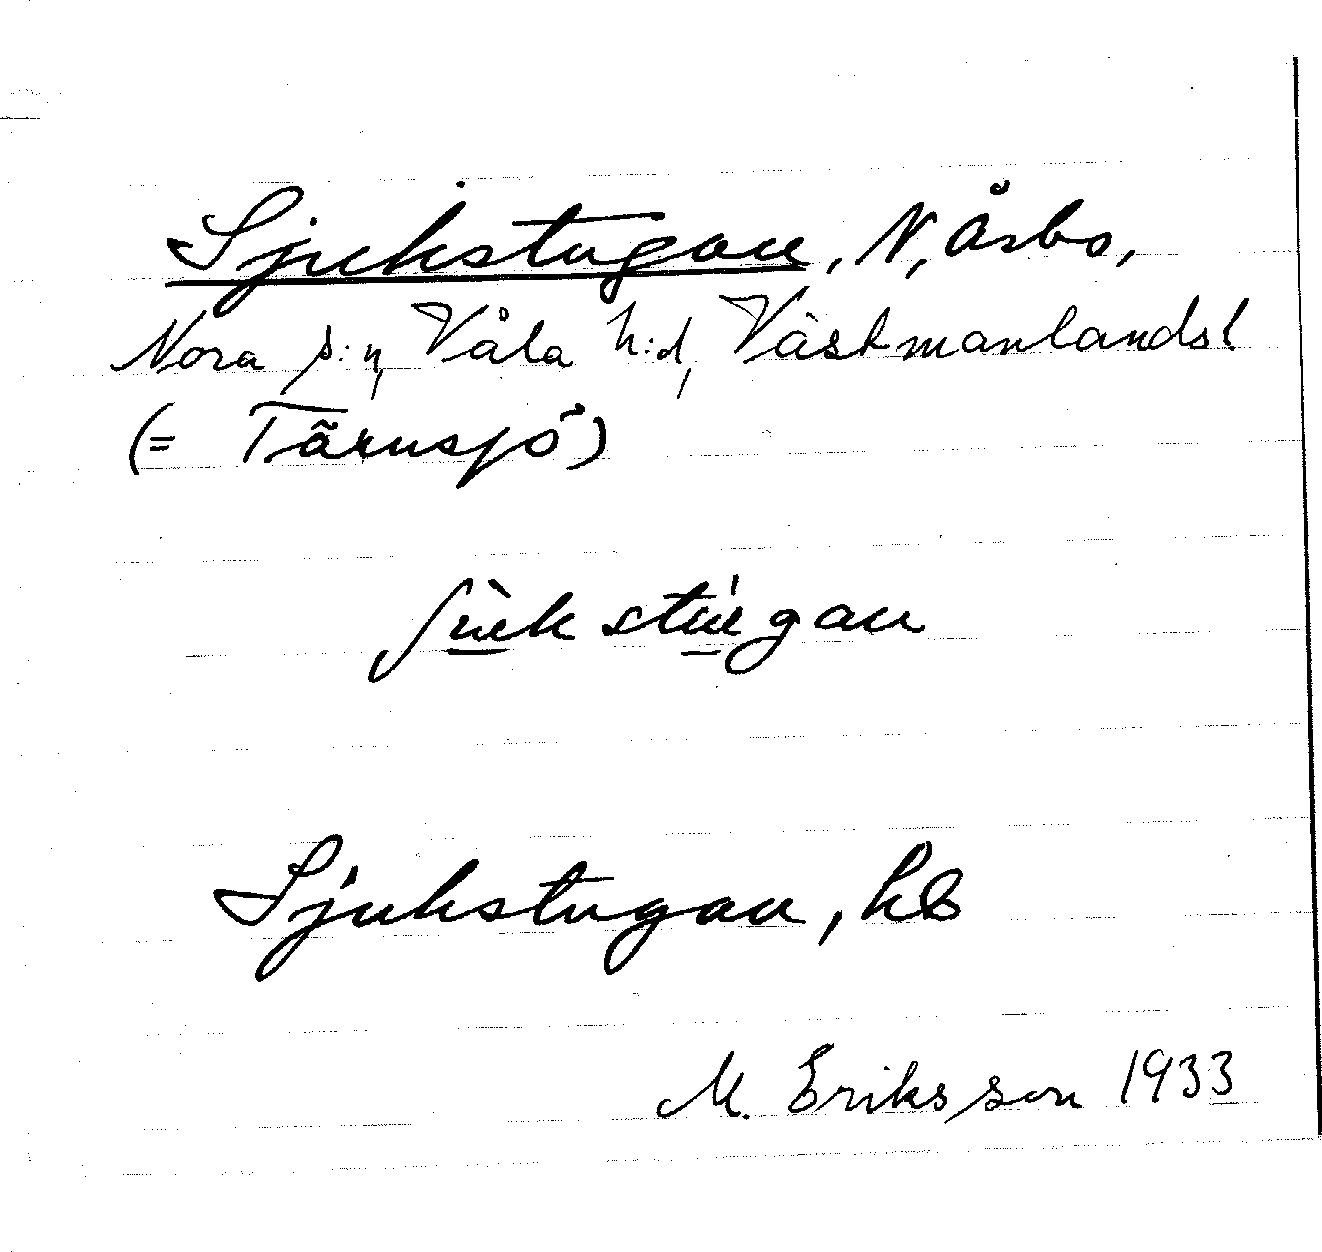 Sjukstugan, N, Åsbo,
Nora s:n, Våla h:d, Västmanlands l
(= Tärnsjö)
Sjukstugan, hs
M. Eriksson 1933